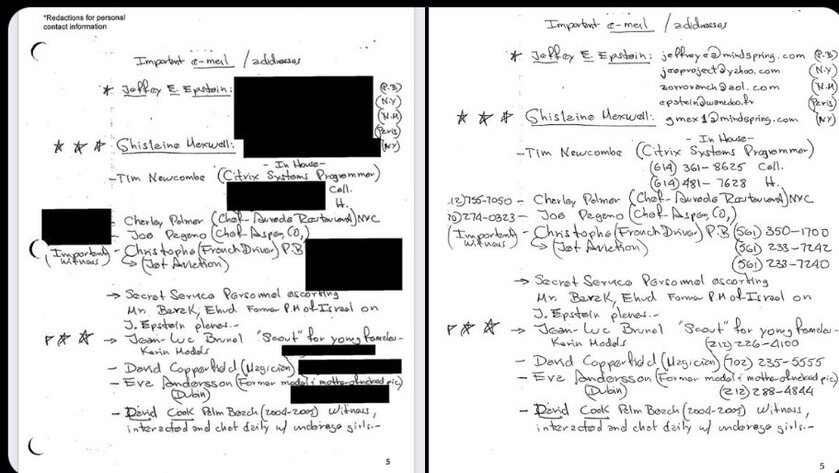 *Redactions for personal
contact information
Important e-meil / addresses
* Jeffrey E. Epstein: (P.B)
(N.Y)
(N.M)
(Peris)
*** Ghislaine Mexwell: (NY)
- In House -
- Tim Newcombe (Citrix Systems Programmer)
Cell.
H.
- Cherley Palmer (Chef - NYC
- Joe Pegeno (Chef - Aspen, CO,)
(Important Witness) - Christophe (French Driver) P.B
→ (Jet Aviction)
→ Secret Service Personnel escorting
Mr. Berek, Ehud Former P.M of Israel on
J. Epstein plenes.-
** → Jean-Luc Brunel "Scout" for young
Kerin Models
- David Copperfield (Magician)
- Eve Andersson (Former model; mother of neked pic)
(Dubin)
- David Cook Pelm Beach (2004-2005) Witness,
interacted and chat deily w/ underege girls.-
5
Important e-meil / addresses
* Jeffrey E. Epstein: jeffreye@mindspring.com (P.B)
jeeproject@yahoo.com (N.Y)
zorroranch@aol.com (N.M)
epstein@wanadoo.fr (Peris)
*** Ghislaine Mexwell: gmex1@mindspring.com (NY)
- In House -
- Tim Newcombe (Citrix Systems Programmer)
(614) 361-8625 Cell.
(614) 481-7628 H.
12) 755-7050 - Cherley Palmer (Chef - NYC
70) 274-0323 - Joe Pegeno (Chef - Aspen, CO,)
(Important Witness) - Christophe (French Driver) P.B (561) 350-1700
→ (Jet Aviction) (561) 233-7242
(561) 233-7240
→ Secret Service Personnel escorting
Mr. Berek, Ehud Former P.M of Israel on
J. Epstein plenes.-
** → Jean-Luc Brunel "Scout" for young
Kerin Models (212) 226-4100
- David Copperfield (Magician) (702) 235-5555
- Eve Andersson (Former model; mother of neked pic)
(Dubin) (212) 288-4844
- David Cook Pelm Beach (2004-2005) Witness,
interacted and chat deily w/ underege girls.-
5